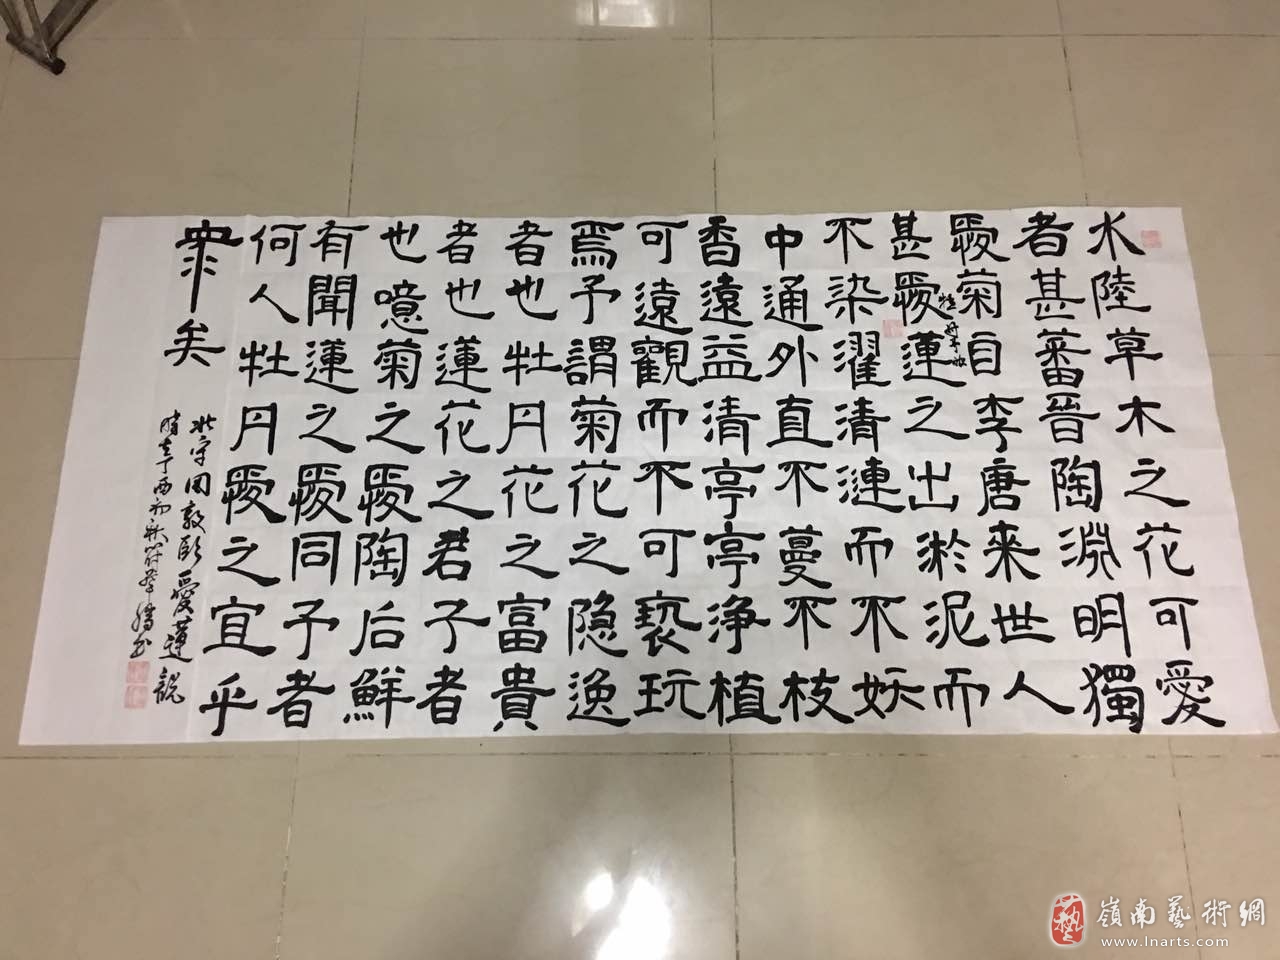 水陸草木之花可愛
者甚蕃晉陶淵明獨
愛菊自李唐来世人
甚愛蓮之出淤泥而
牡丹予
不染濯清漣而不妖
中通外直不蔓不枝
香遠益清亭亭浄植
可遠觀而不可褻玩
焉予謂菊花之隐逸
者也牡丹花之富貴
者也蓮花之君子者
也噫菊之愛陶后鮮
有聞蓮之愛同予者
何人牡丹愛之宜乎
眾矣
北宋周敦頤愛蓮説
丁酉初秋符勝书
藝 嶺南藝術網
www.lnarts.com